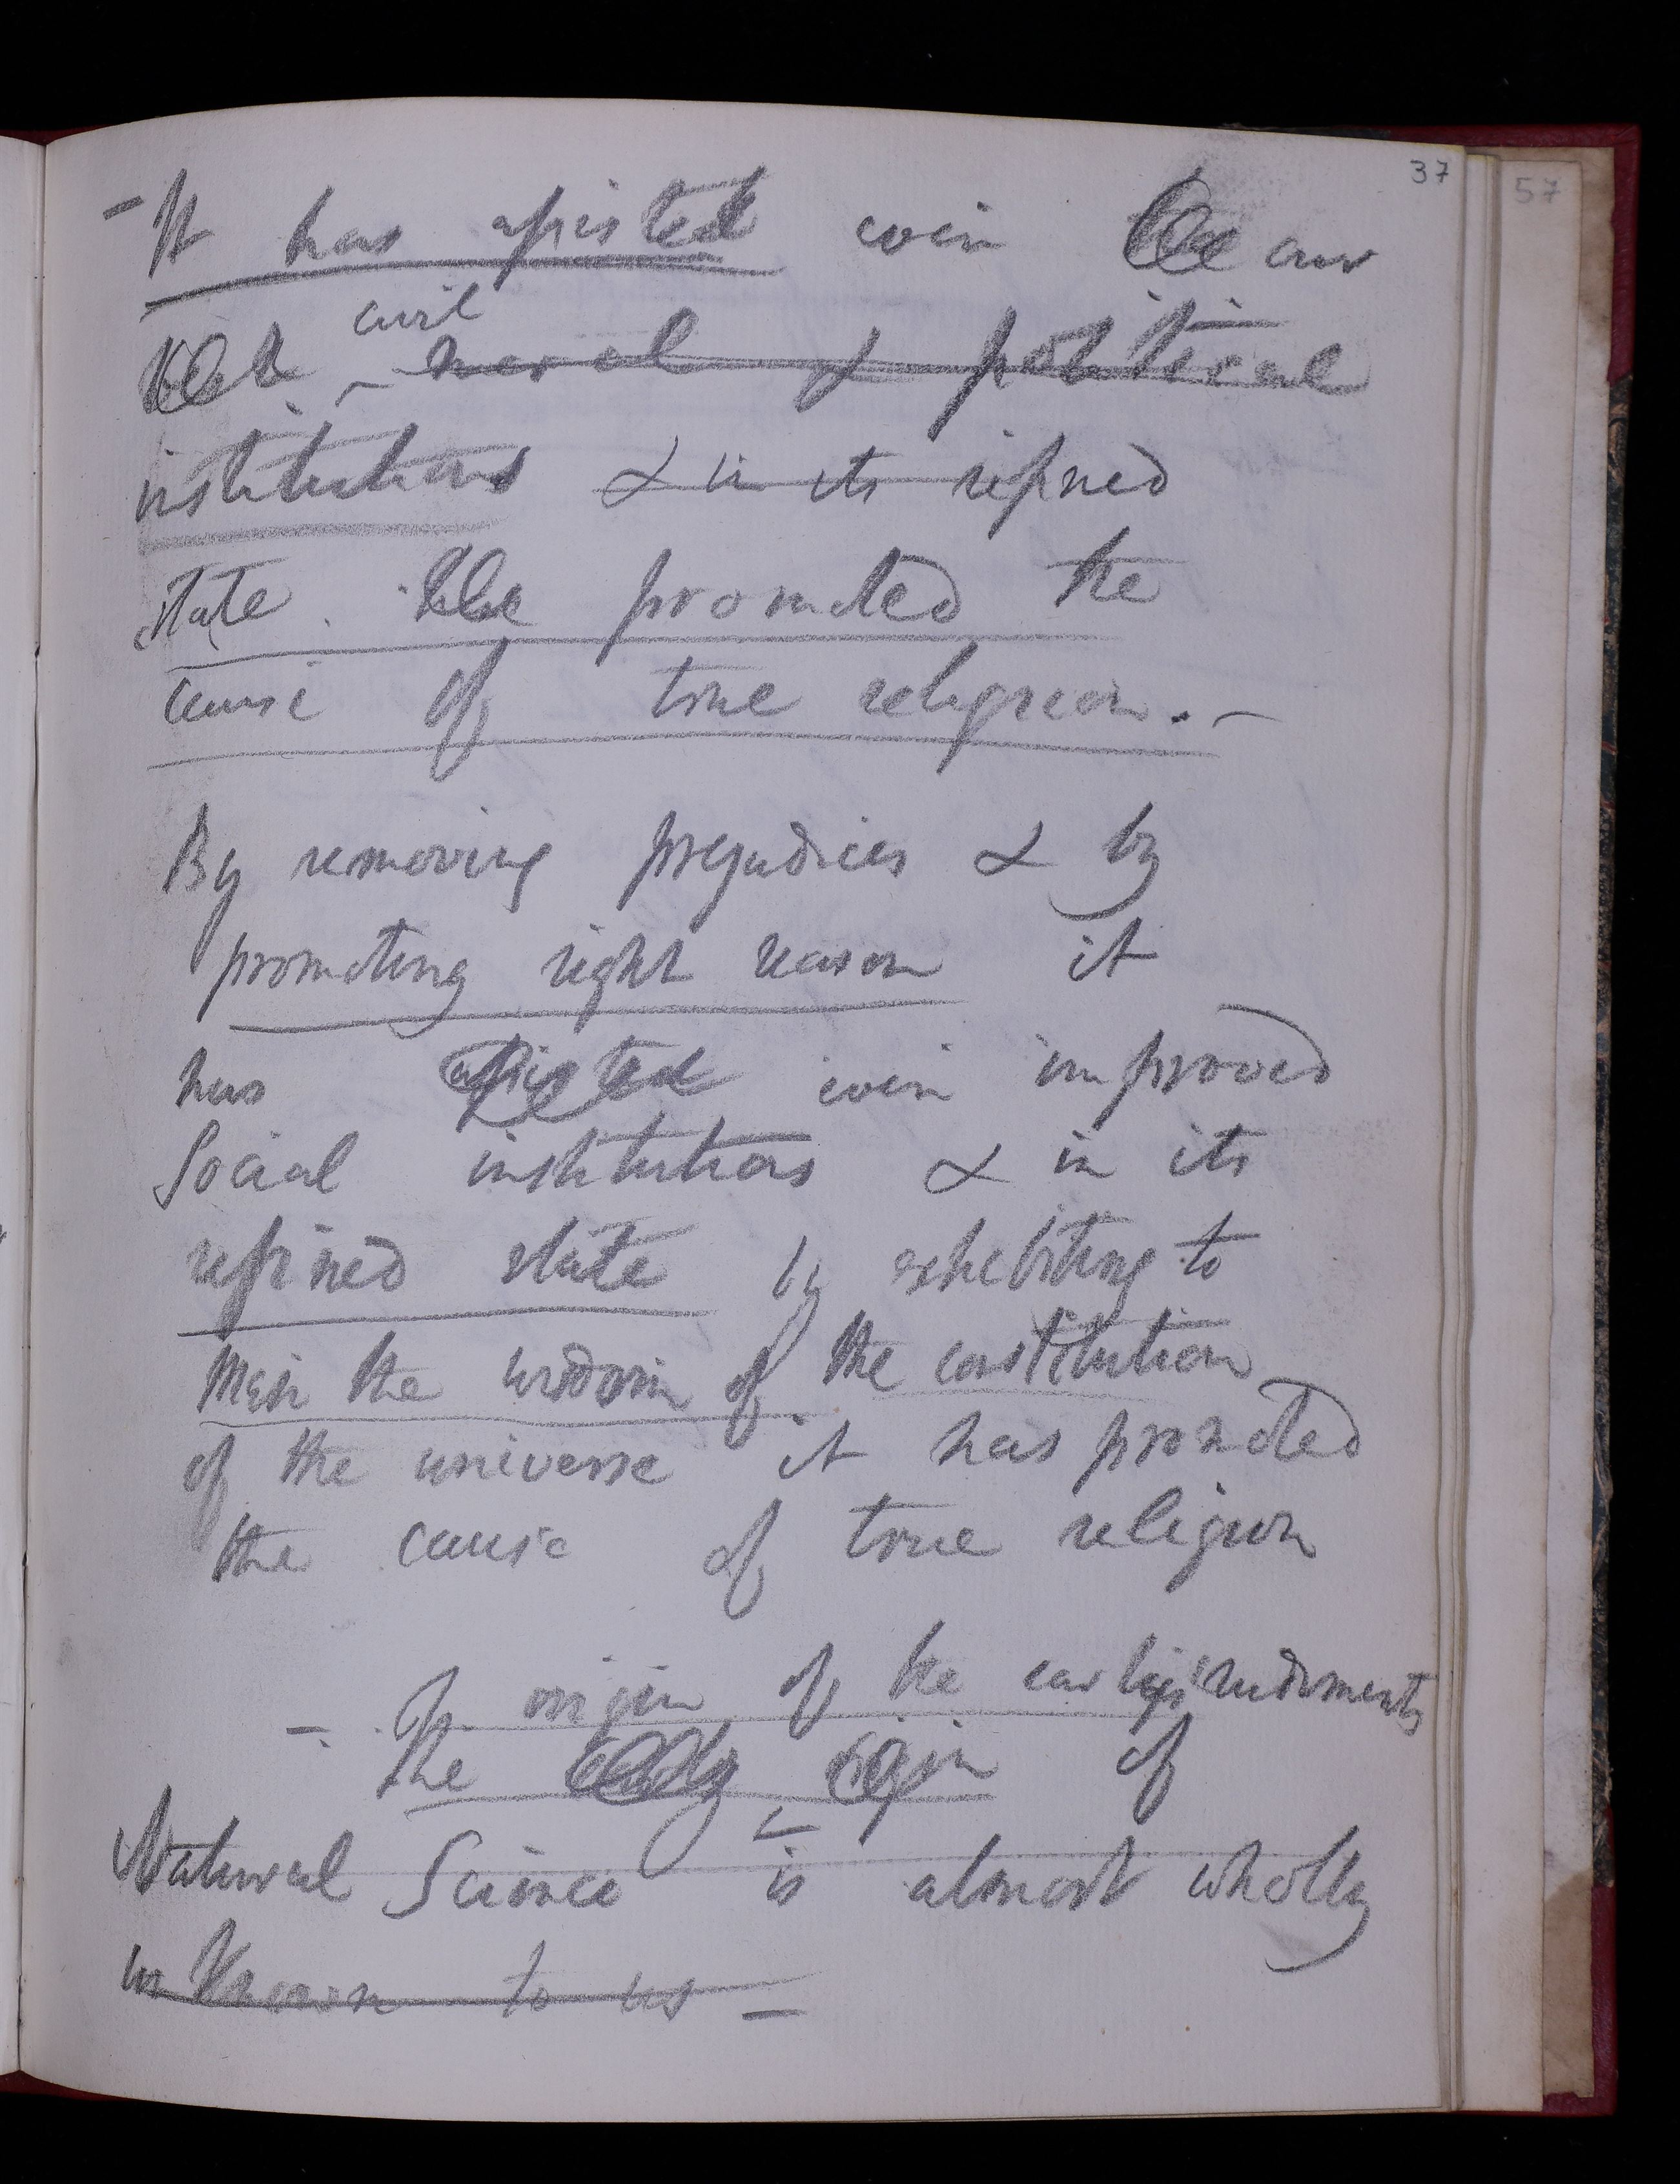 37
57
- It has assisted even our
civil
moral & political
institutions & in its refined
state promoted the
cause of true religion. -
By removing prejudices & by
promoting right reason it
has assisted even improved
Social institutions & in its
refined state by exhibiting to
Man the wisdom of the constitution
of the universe it has promoted
the cause of true religion
- origin of the earliest rudiments
the early origin of
Natural Science is almost wholly
unknown to us -